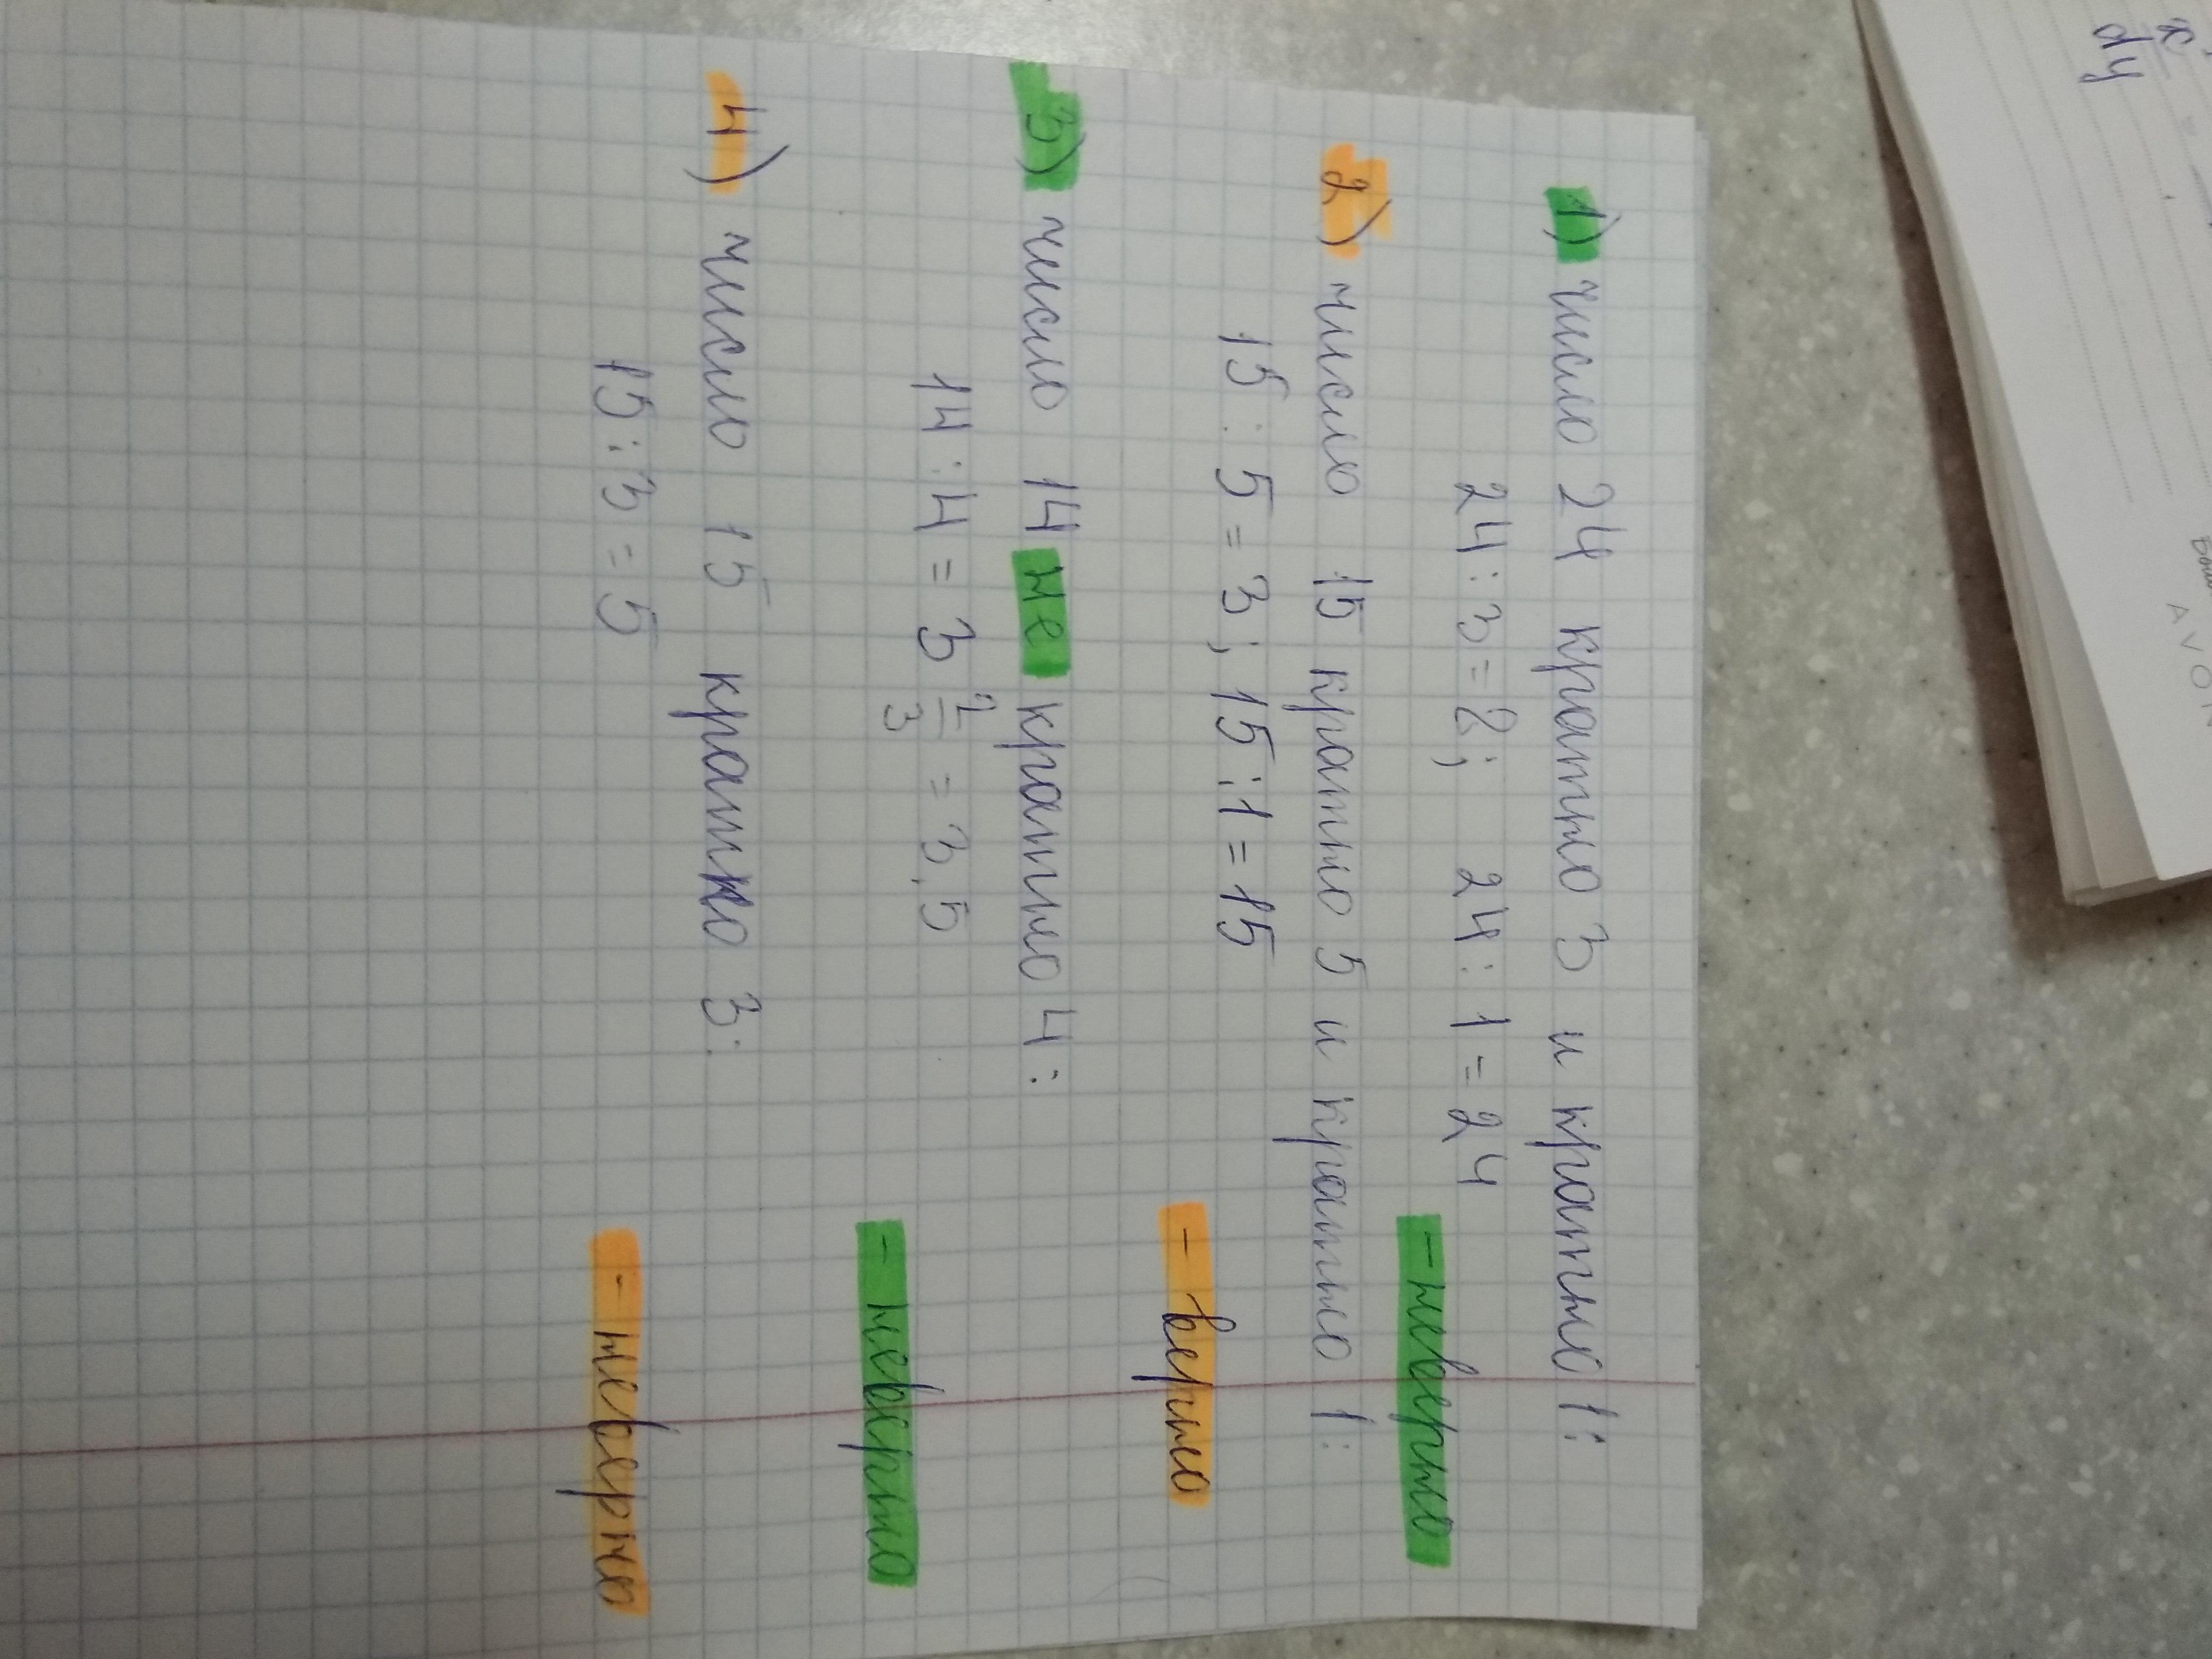 1) число 24 кратно 3 и кратно 1:
24 : 3 = 8; 24 : 1 = 24
- неверно
2) число 15 кратно 5 и кратно 1:
15 : 5 = 3; 15 : 1 = 15
- верно
3) число 14 не кратно 4:
14 : 4 = 3 2/3 = 3,5
- неверно
4) число 15 кратно 3:
15 : 3 = 5
- неверно
x
dy
AVON